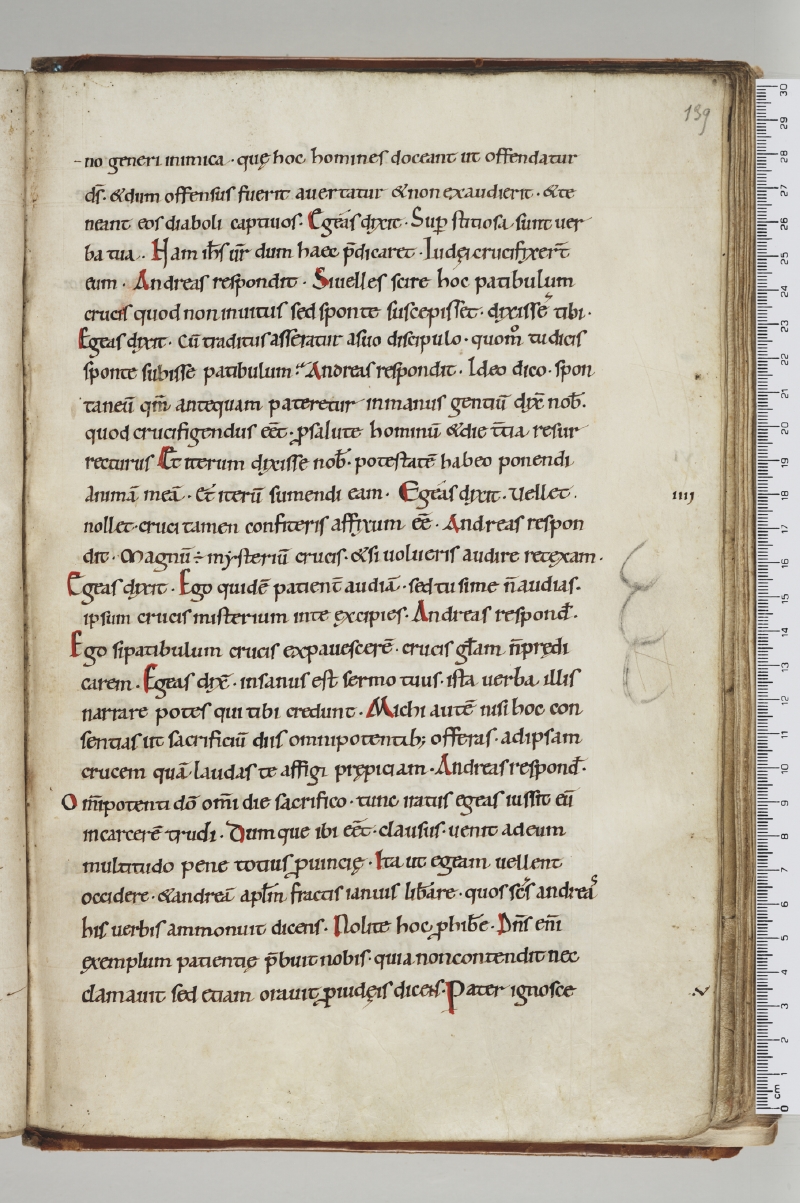 139
no generi inimica · quę hoc homines doceant ut offendatur
ds̄. &dum offensus fuerit auertatur & non exaudierit · & te
neant eos diaboli captiuos. Egeas dixit. Sup stitiosa sunt uer
ba tua. Nam ih̄s ur̄ dum haec p̄dicaret. Iudęi crucifixer̄t
eum. Andreas respondit. Si uelles scire hoc patibulum
crucis quod non inuitus sed sponte suscepisset. dixisse tibi.
Egeas dixit. Cū traditus asseratur a suo discipulo. quom̊ tu dicis
sponte subisse patibulum. Andreas respondit. Ideo dico. spon
taneū qm̄ antequam pateretur in manus gentiū dix̄ nob̄.
quod crucifigendus eēt. ꝓ salute hominū & die t̄tia resur
recturus Et iterum dixisse nob̄. potestatē habeo ponendi
animā meā. et iterū sumendi eam. Egeas dixit. Vellet.
nollet. cruci tamen confiteris affixum eē. Andreas respon
iiii
dit. Magnū ÷ mysteriū crucis. & si uolueris audire retexam.
Egeas dixit. Ego quidē patient̄ audiā. sed tu si me n̄ audias.
ipsum crucis misterium in te excipies. Andreas respond̄.
Ego si patibulum crucis expauescerē. crucis gl̄am n̄ prędi
carem. Egeas dix̄. insanus est sermo tuus. ista uerba illis
narrare potes qui tibi credunt. Michi autē nisi hoc con
sentias ut sacrificiū diis omnipotentib; offeras. ad ipsam
crucem quā laudas te affigi pręcipiam. Andreas respond̄.
Om̄ipotenti dō om̄i die sacrifico. tunc iratus egeas iussit eū
in carcerē trudi. Dumque ibi eēt. clausus. uenit ad eum
multitudo pene totius ꝓuincię. Ita ut egeam uellent
occidere. & andreā apl̄m fractis ianuis lib̄are. quos sc̄s andreas
his uerbis ammonuit dicens. Nolite hoc ꝓhib̄e. Dn̄s en̄i
exemplum patientię p̄buit nobis. quia non contendit nec
clamauit sed etiam orauit ꝓ iudęis dicens. Pater ignosce
V